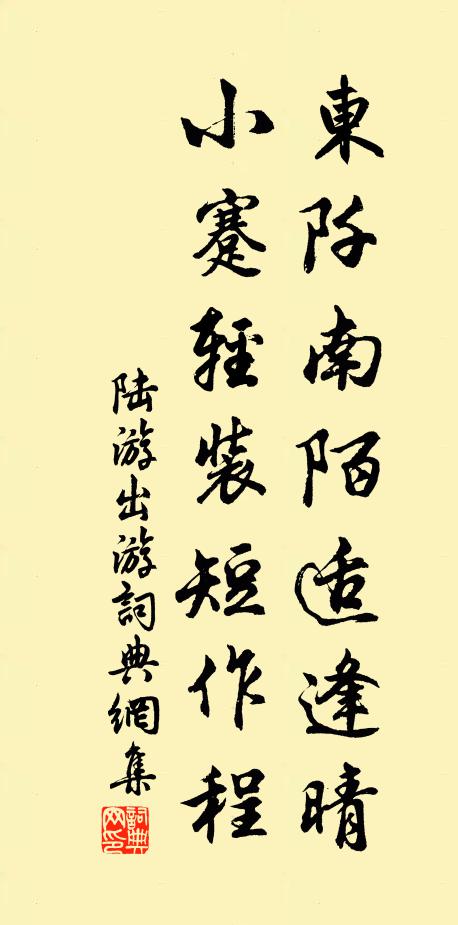 東阡南陌适逢晴
小蹇輕裝短作程
陆游出游詞典網集
詞典网印